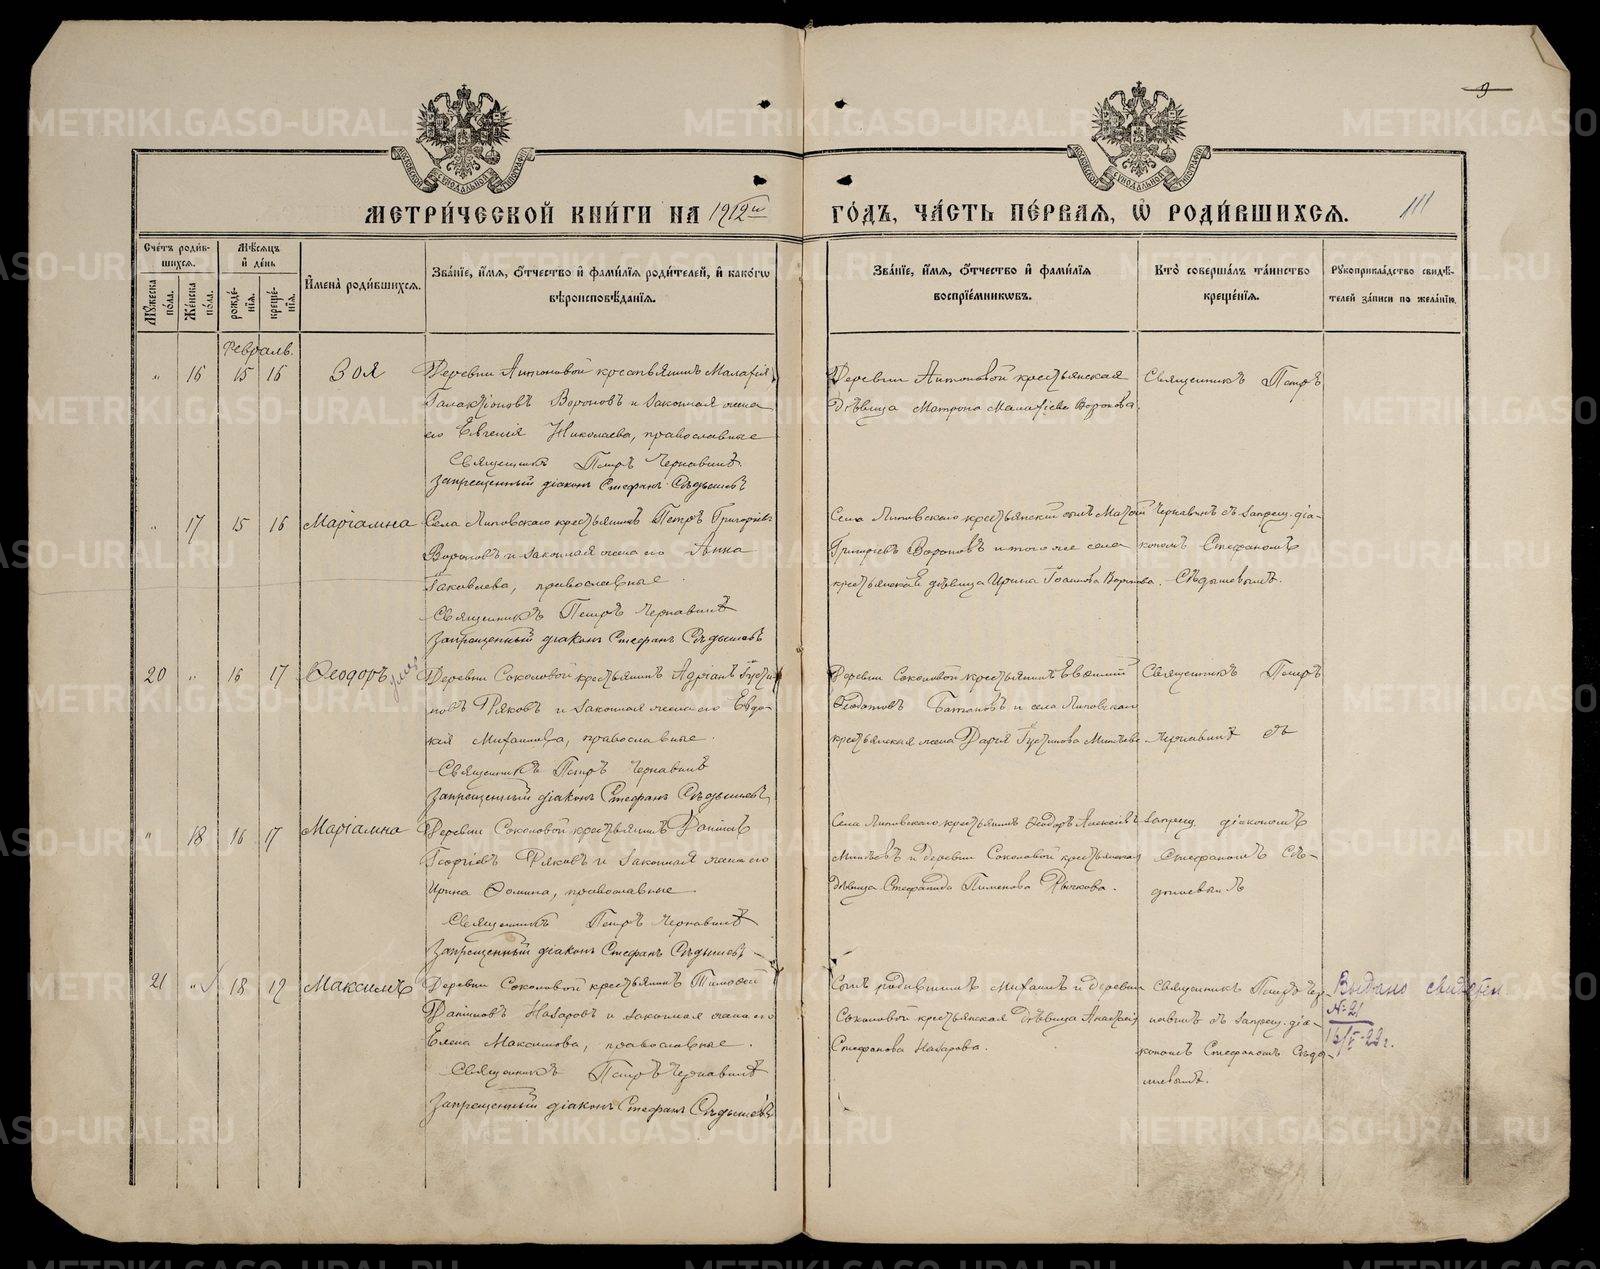 9
МОСКОВСКОЙ СѴНОДАЛЬНОЙ ТИПОГРАФІИ
МОСКОВСКОЙ СѴНОДАЛЬНОЙ ТИПОГРАФІИ
МЕТРИ́ЧЕСКОЙ КНИ́ГИ НА 1912й ГО́ДЪ, ЧА́СТЬ ПЕ́РВАѦ, Ѡ҆ РОДИ́ВШИХСѦ.
111
Сче́тъ роди́в-
шихсѧ.
Мѣ́сѧцъ
и҆ де́нь
Мꙋ́жеска по́ла.
Же́нска по́ла.
рожде́-нїѧ.
креще́-нїѧ.
И҆мена̀ роди́вшихсѧ.
Зва́нїе, и҆́мѧ, ѻ҆́тчество и҆ фами́лїѧ роди́телей, и҆ како́гѡ
вѣроисповѣ́данїѧ.
Зва́нїе, и҆́мѧ, ѻ҆́тчество и҆ фами́лїѧ
воспрїе́мникѡвъ.
Кто̀ соверша́лъ та́инство
креще́нїѧ.
Рꙋкоприкла́дство свидѣ́-
телей за́писи по жела́нїю.
Февраль.
" 16 15 16 Зоя
Деревни Антоновой крестьянинъ Малафей
Галактіоновъ Вороновъ и законная жена
его Евгенія Николаева, православные
Священникъ Петръ Чернавинъ
Запрещенный діаконъ Стефанъ Сѣдышевъ
Деревни Антоновой крестьянская
дѣвица Матрона Малафіева Воронова.
Священникъ Петръ
" 17 15 16 Маріамна
Села Липовскаго крестьянинъ Петръ Григоріевъ
Вороновъ и законная жена его Анна
Іаковлева, православные.
Священникъ Петръ Чернавинъ
Запрещенный діаконъ Стефанъ Сѣдышевъ
Села Липовскаго крестьянскій сынъ
Григоріевъ Вороновъ и того же села
крестьянская дѣвица Ирина Іоаннова Воронова.
Чернавинъ съ запрещ. діа-
кономъ Стефаномъ
Сѣдышевымъ.
20 " 16 17 Ѳеодоръ
Деревни Соколовой крестьянинъ Адріанъ Іусти-
новъ Ряковъ и законная жена его Евдо-
кія Михаилова, православные.
Священникъ Петръ Чернавинъ
Запрещенный діаконъ Стефанъ Сѣдышевъ
Деревни Соколовой крестьянинъ
Ѳеодотовъ и села Липовскаго
крестьянская жена Дарія Іустинова
Священникъ Петръ
Чернавинъ съ
" 18 16 17 Маріамна
Деревни Соколовой крестьянинъ Даніилъ
Георгіевъ Ряковъ и законная жена его
Ирина Ѳомина, православные.
Священникъ Петръ Чернавинъ
Запрещенный діаконъ Стефанъ Сѣдышевъ
Села Липовскаго крестьянинъ Ѳеодоръ Алексіевъ
и деревни Соколовой крестьянская
дѣвица Стефанида Пименова
запрещ. діакономъ
Стефаномъ Сѣ-
дышевымъ
21 " 18 19 Максимъ
Деревни Соколовой крестьянинъ Тимоѳей
Даніиловъ Назаровъ и законная жена его
Елена Максимова, православные.
Священникъ Петръ Чернавинъ
Запрещенный діаконъ Стефанъ Сѣдышевъ
Михаилъ и деревни
Соколовой крестьянская дѣвица Анастасія
Стефанова Назарова.
Священникъ Петръ Чер-
навинъ съ запрещ. діа-
кономъ Стефаномъ Сѣды-
шевымъ.
Выдано свидетел.
№ 21
METRIKI.GASO-URAL.RU